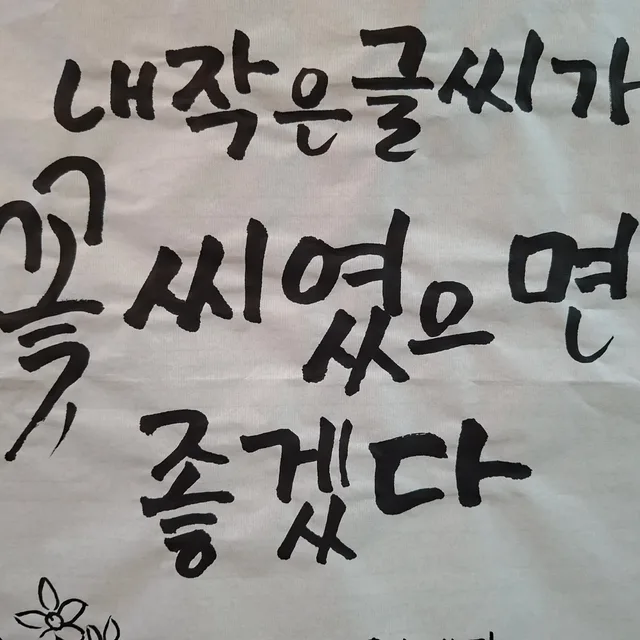 내 작은 글씨가
꽃씨였으면
좋겠다